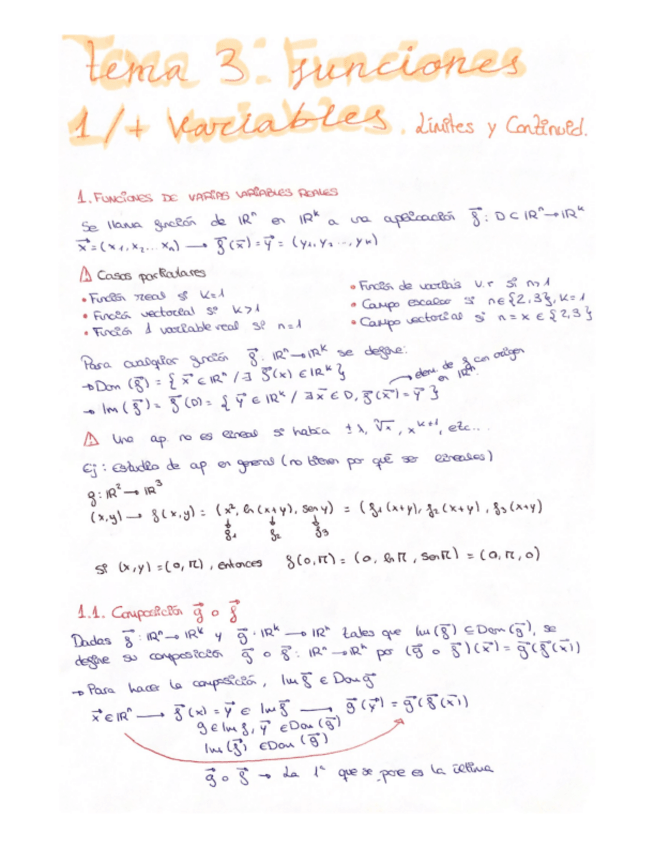 Tema 3: Funciones
1/+ Variables. Límites y Continuid.
1. FUNCIONES DE VARIAS VARIABLES REALES
Se llama función de IRⁿ en IRᵏ a una aplicación f⃗: D ⊂ IRⁿ → IRᵏ
x⃗ = (x₁, x₂... xₙ) → f⃗(x⃗) = y⃗ = (y₁, y₂ ..., yₖ)
⚠ Casos particulares
• Función real si k=1
• Función vectorial si k>1
• Función 1 variable real si n=1
• Función de varias v.r si n>1
• Campo escalar si n∈{2,3}, k=1
• Campo vectorial si n=k∈{2,3}
Para cualquier función f⃗: IRⁿ → IRᵏ se define:
→ Dom (f⃗) = { x⃗ ∈ IRⁿ / ∃ f⃗(x) ∈ IRᵏ }
→ elem. de f con origen en IRⁿ.
→ Im (f⃗) = f⃗(D) = { y⃗ ∈ IRᵏ / ∃ x⃗ ∈ D, f⃗(x⃗) = y⃗ }
⚠ Una ap. no es lineal si había ± λ, ⁿ√x, xᵏ⁺¹, etc...
Ej: Estudio de ap en general (no tienen por qué ser lineales)
g: IR² → IR³
(x,y) → f(x,y) = (x², ln(x+y), sen y) = (f₁(x+y), f₂(x+y), f₃(x+y)
f₁ f₂ f₃
Si (x,y) = (0,π), entonces f(0,π) = (0, lnπ, senπ) = (0,π,0)
1.1. Composición g⃗ o f⃗
Dadas f⃗: IRⁿ → IRᵏ y g⃗: IRᵏ → IRʰ tales que Im(f⃗) ⊆ Dom(g⃗), se
define su composición g⃗ o f⃗: IRⁿ → IRʰ por (g⃗ o f⃗)(x⃗) = g⃗(f⃗(x⃗))
→ Para hacer la composición, Im f⃗ ∈ Dom g⃗
x⃗ ∈ IRⁿ → f⃗(x) = y⃗ ∈ Im f⃗ → g⃗(y⃗) = g⃗(f⃗(x⃗))
y ∈ Im f, y⃗ ∈ Dom (g⃗)
Im (f⃗) ∈ Dom (g⃗)
g⃗ o f⃗ → La 1ª que se pone es la última